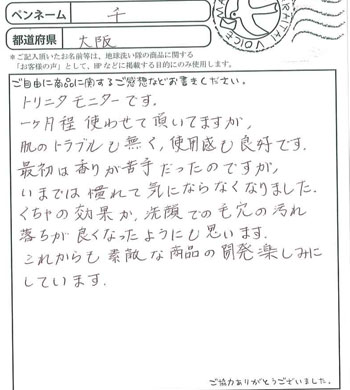 ペンネーム 千
都道府県 大阪
※ご記入頂いたお名前等は、地球洗い隊の商品に関する
「お客様の声」として、HPなどに掲載する目的にのみ使用します。
ご自由に商品に関するご感想などお書きください。
トリニタモニターです。
一ヶ月程使わせて頂いてますが、
肌のトラブルも無く、使用感も良好です。
最初は香りが苦手だったのですが、
いまでは慣れて気にならなくなりました。
くちゃの効果か、洗顔での毛穴の汚れ
落ちが良くなったようにも思います。
これからも素敵な商品の開発楽しみに
しています。
ご協力ありがとうございました。